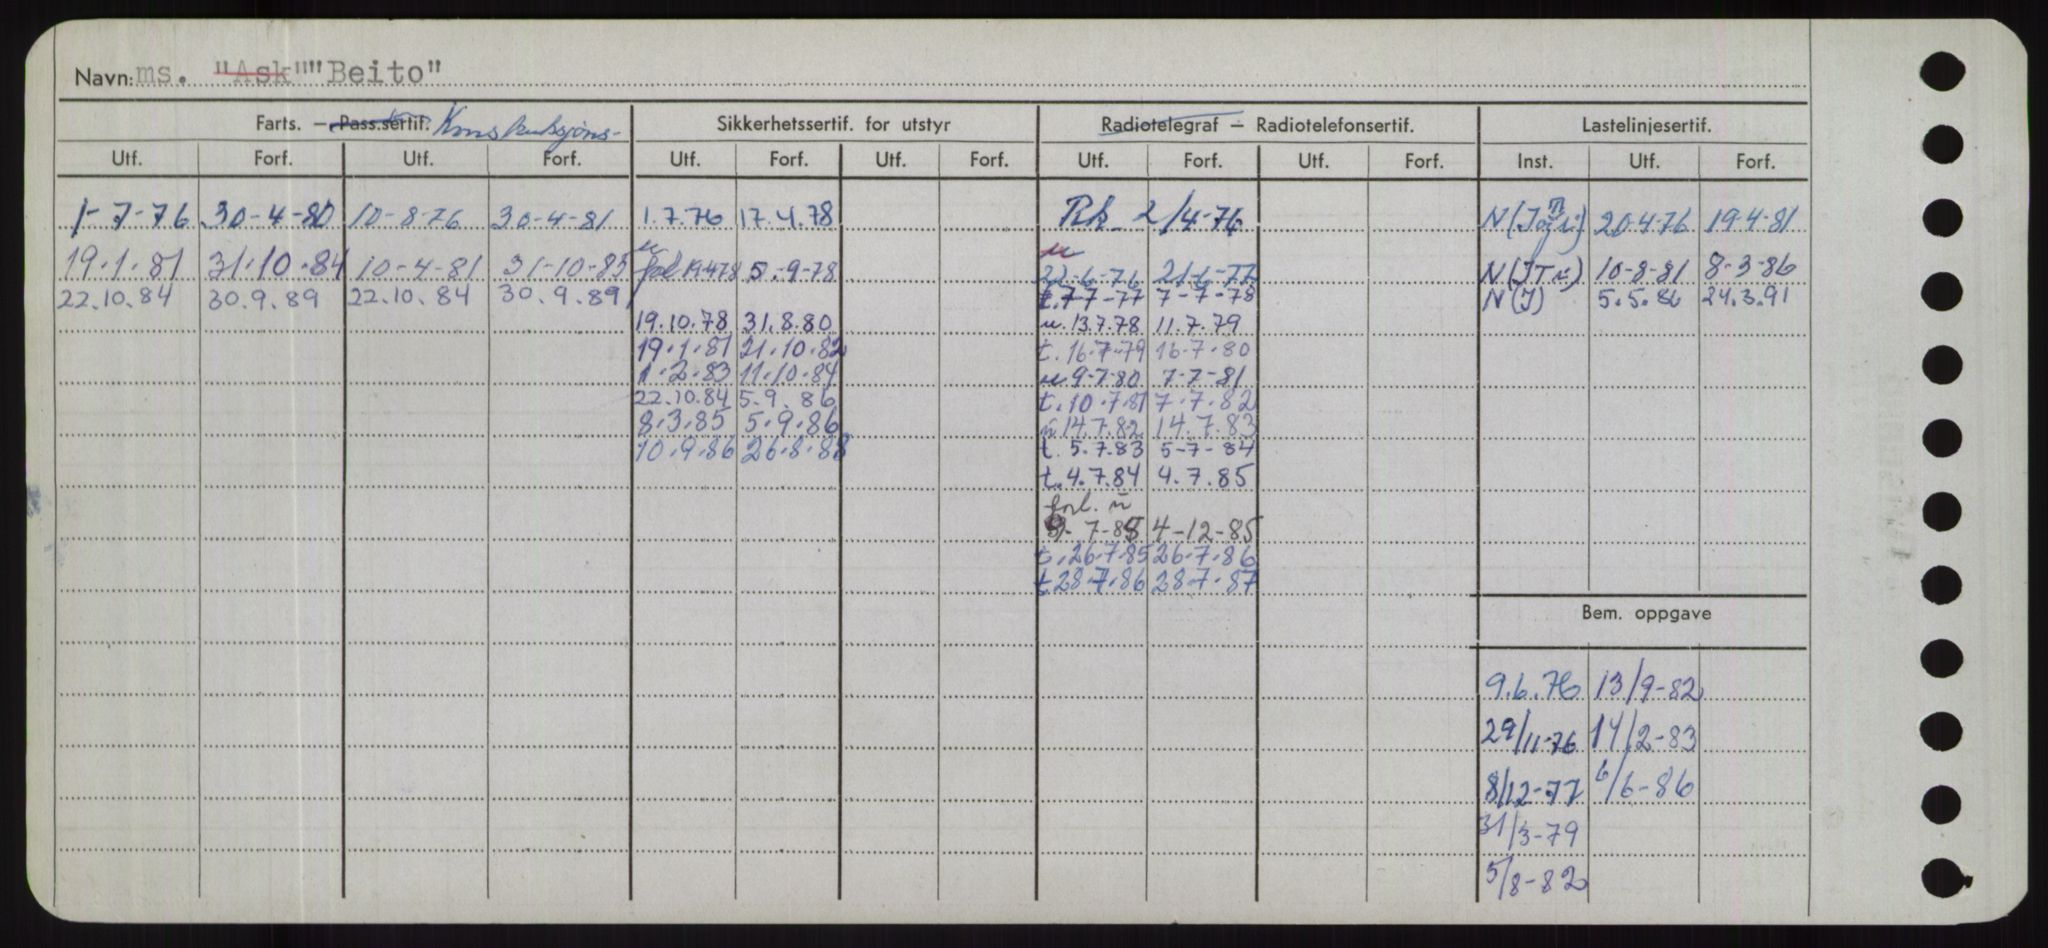 Navn: ms. "Ask" "Beito"
Farts. — Pass.sertif. Konstruksjons- Sikkerhetssertif. for utstyr Radiotelegraf — Radiotelefonsertif. Lastelinjesertif.
Utf. Forf. Utf. Forf. Utf. Forf. Utf. Forf. Utf. Forf. Utf. Forf. Inst. Utf. Forf.
1-7-76 30-4-80 10-8-76 30-4-81 1.7.76 17.4.78 2/4-76 20-4-76 19-4-81
19.1.81 31.10.84 10-4-81 31-10-85 19.4.78 5.-9-78 22-6-76 21-6-77 10-8-81 8-3-86
22.10.84 30.9.89 22.10.84 30.9.89 t.7-7-77 7-7-78 N(I) 5.5.86 24.3.91
19.10.78 31.8.80 u.13.7.78 11.7.79
19.1.81 21.10.82 t.16.7-79 16.7.80
1.2.83 11.10.84 u 9-7-80 7-7-81
22.10.84 5.9.86 t.10.7.81 7.7.82
8.3.85 5.9.86 14.7.82 14.7.83
10.9.86 26.8.88 t.5.7.83 5-7-84
t.4.7.84 4.7.85
forl. u
7-85 4-12-85
t.26.7.85 26.7.86
t.28.7.86 28.7.87
Bem. oppgave
9.6.76 13/9-82
29/11-76 14/2-83
8/12-77 6/6-86
31/3-79
5/8-82